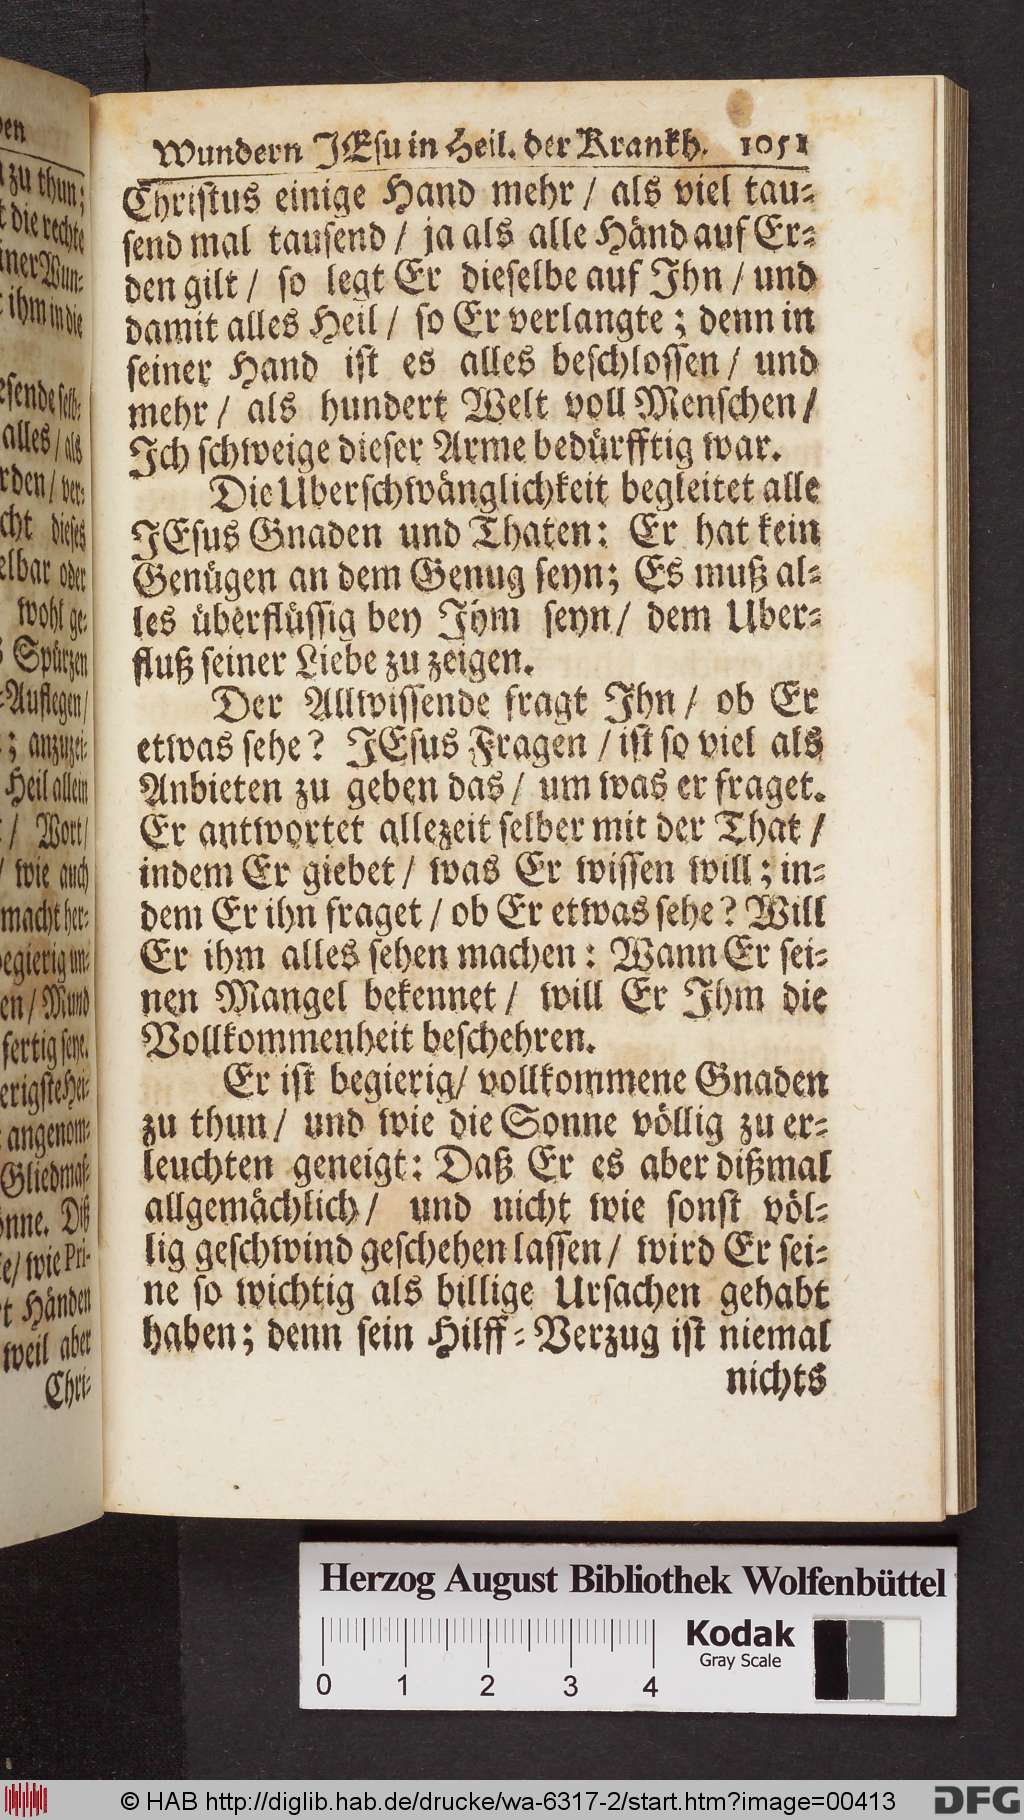 ben
zu thun;
die rechte
iner Wun-
ihm in die
esende selb-
alles / als
rden / ver-
cht dieses
elbar oder
wohl ge-
Spürzen
-Auflegen /
; anzuzei-
Heil allein
/ Wort /
/ wie auch
macht her-
begierig un-
en / Mund
fertig seye.
erigste Hei-
angenom-
Gliedmaß-
önne. Diß
e / wie Pri-
t Händen
weil aber
Chri-
Wundern JEsu in Heil. der Krankh. 1051
Christus einige Hand mehr / als viel tau-
send mal tausend / ja als alle Händ auf Er-
den gilt / so legt Er dieselbe auf Ihn / und
damit alles Heil / so Er verlangte; denn in
seiner Hand ist es alles beschlossen / und
mehr / als hundert Welt voll Menschen /
Ich schweige dieser Arme bedürfftig war.
Die Uberschwänglichkeit begleitet alle
JEsus Gnaden und Thaten: Er hat kein
Genügen an dem Genug seyn; Es muß al-
les überflüssig bey Ihm seyn / dem Uber-
fluß seiner Liebe zu zeigen.
Der Allwissende fragt Ihn / ob Er
etwas sehe? JEsus Fragen / ist so viel als
Anbieten zu geben das / um was er fraget.
Er antwortet allezeit selber mit der That /
indem Er giebet / was Er wissen will; in-
dem Er ihn fraget / ob Er etwas sehe? Will
Er ihm alles sehen machen: Wann Er sei-
nen Mangel bekennet / will Er Ihm die
Vollkommenheit beschehren.
Er ist begierig / vollkommene Gnaden
zu thun / und wie die Sonne völlig zu er-
leuchten geneigt: Daß Er es aber dißmal
allgemächlich / und nicht wie sonst völ-
lig geschwind geschehen lassen / wird Er sei-
ne so wichtig als billige Ursachen gehabt
haben; denn sein Hilff-Verzug ist niemal
nichts
Herzog August Bibliothek Wolfenbüttel
Kodak
Gray Scale
0 1 2 3 4
© HAB http://diglib.hab.de/drucke/wa-6317-2/start.htm?image=00413
DFG